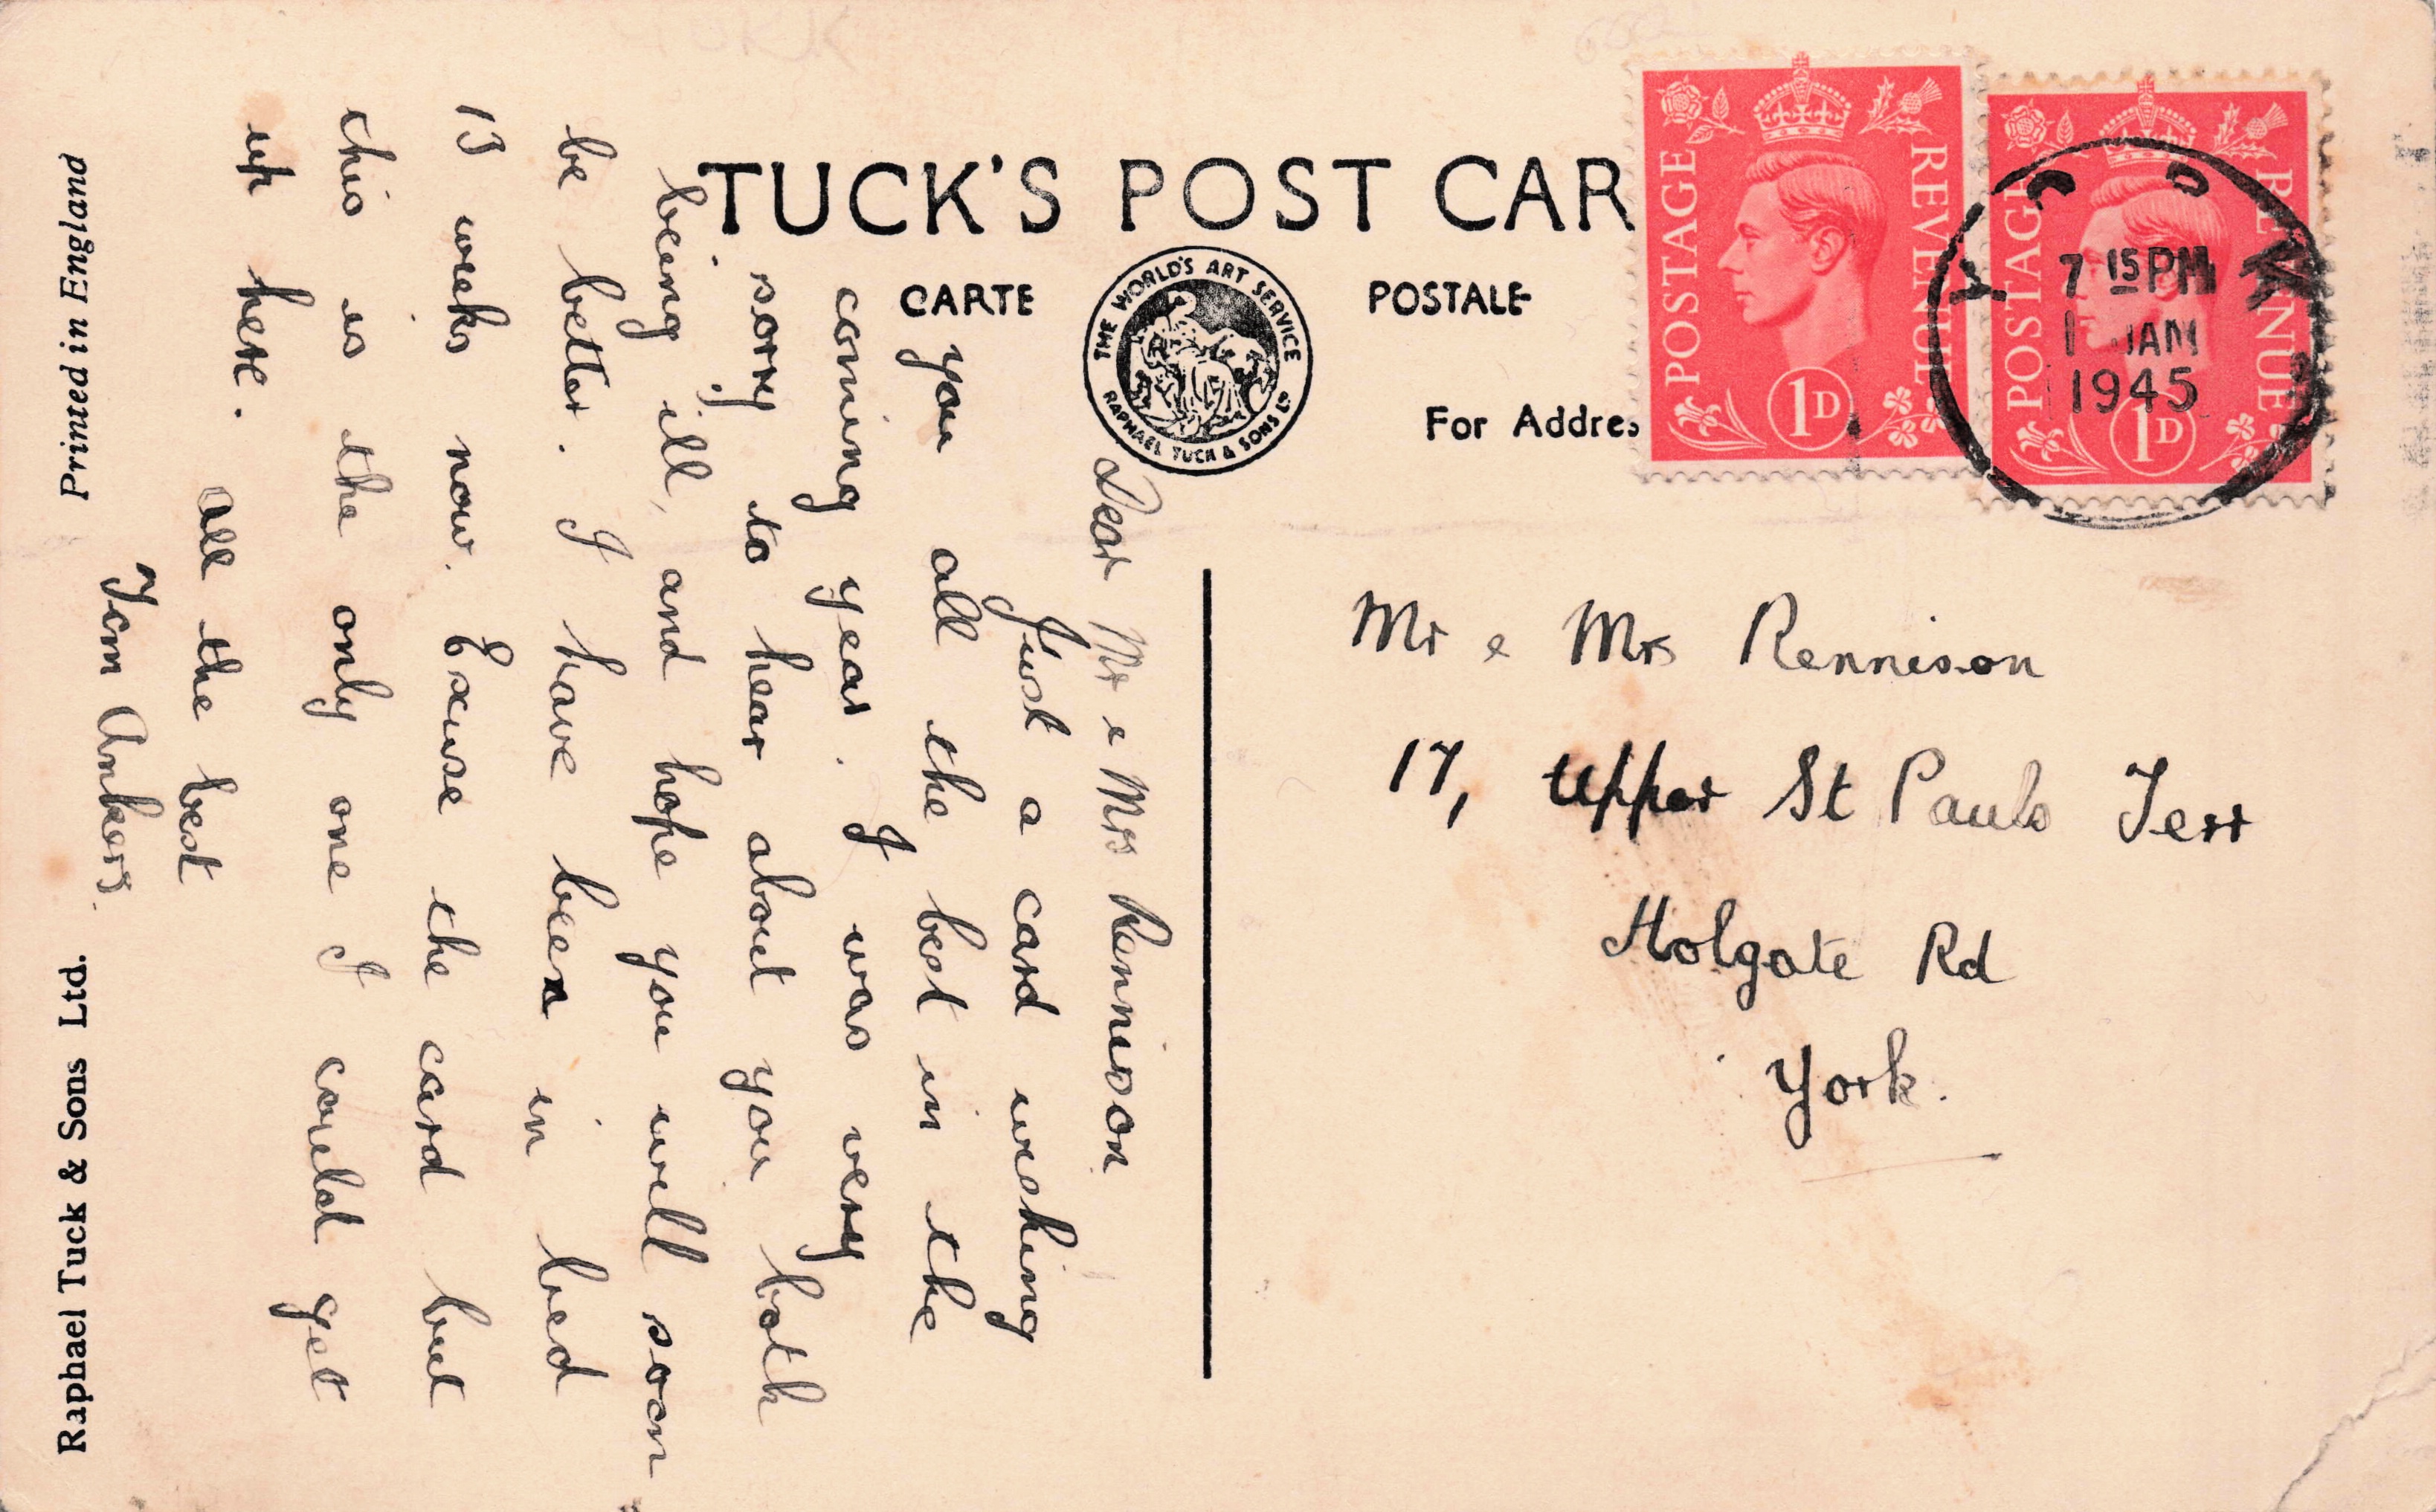 TUCK'S POST CAR
CARTE POSTALE
THE WORLD'S ART SERVICE
RAPHAEL TUCK & SONS LD
For Addres
POSTAGE REVENUE
1D
POSTAGE REVENUE
1D
Y O K
7 15 PM
1 JAN
1945
Mr & Mrs Rennison
17, Upper St Pauls Terr
Holgate Rd
York.
Dear Mr & Mrs Rennison
Just a card wishing
you all the best in the
coming year. I was very
sorry to hear about you both
being ill, and hope you will soon
be better. I have been in bed
13 weeks now. Excuse the card but
this is the only one I could get
up here.
All the best
Tom Ankers.
Raphael Tuck & Sons Ltd. Printed in England